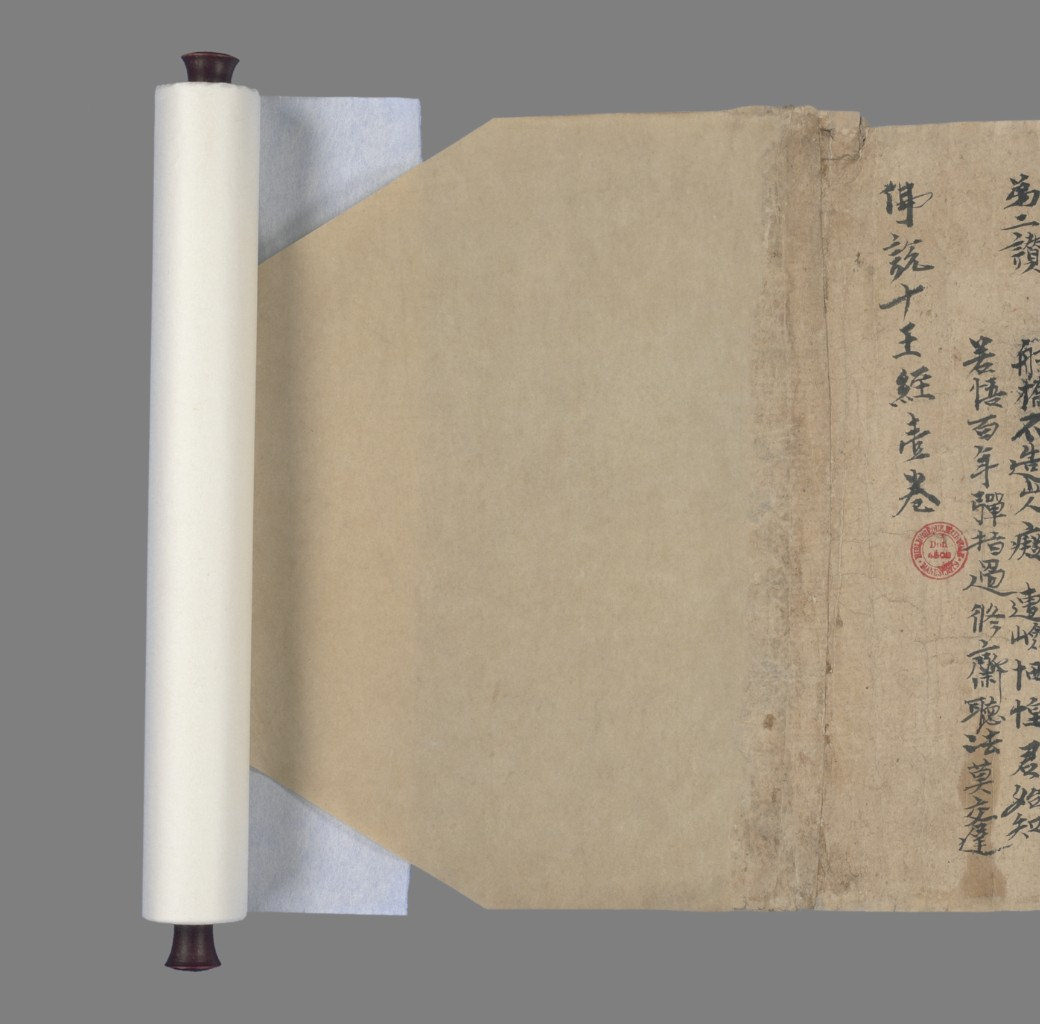 第二讚 船橋不造此人癡 遭嶮恓惶君始知
若悟百年彈指過 修齋聽法莫交遲
佛說十王經壹卷